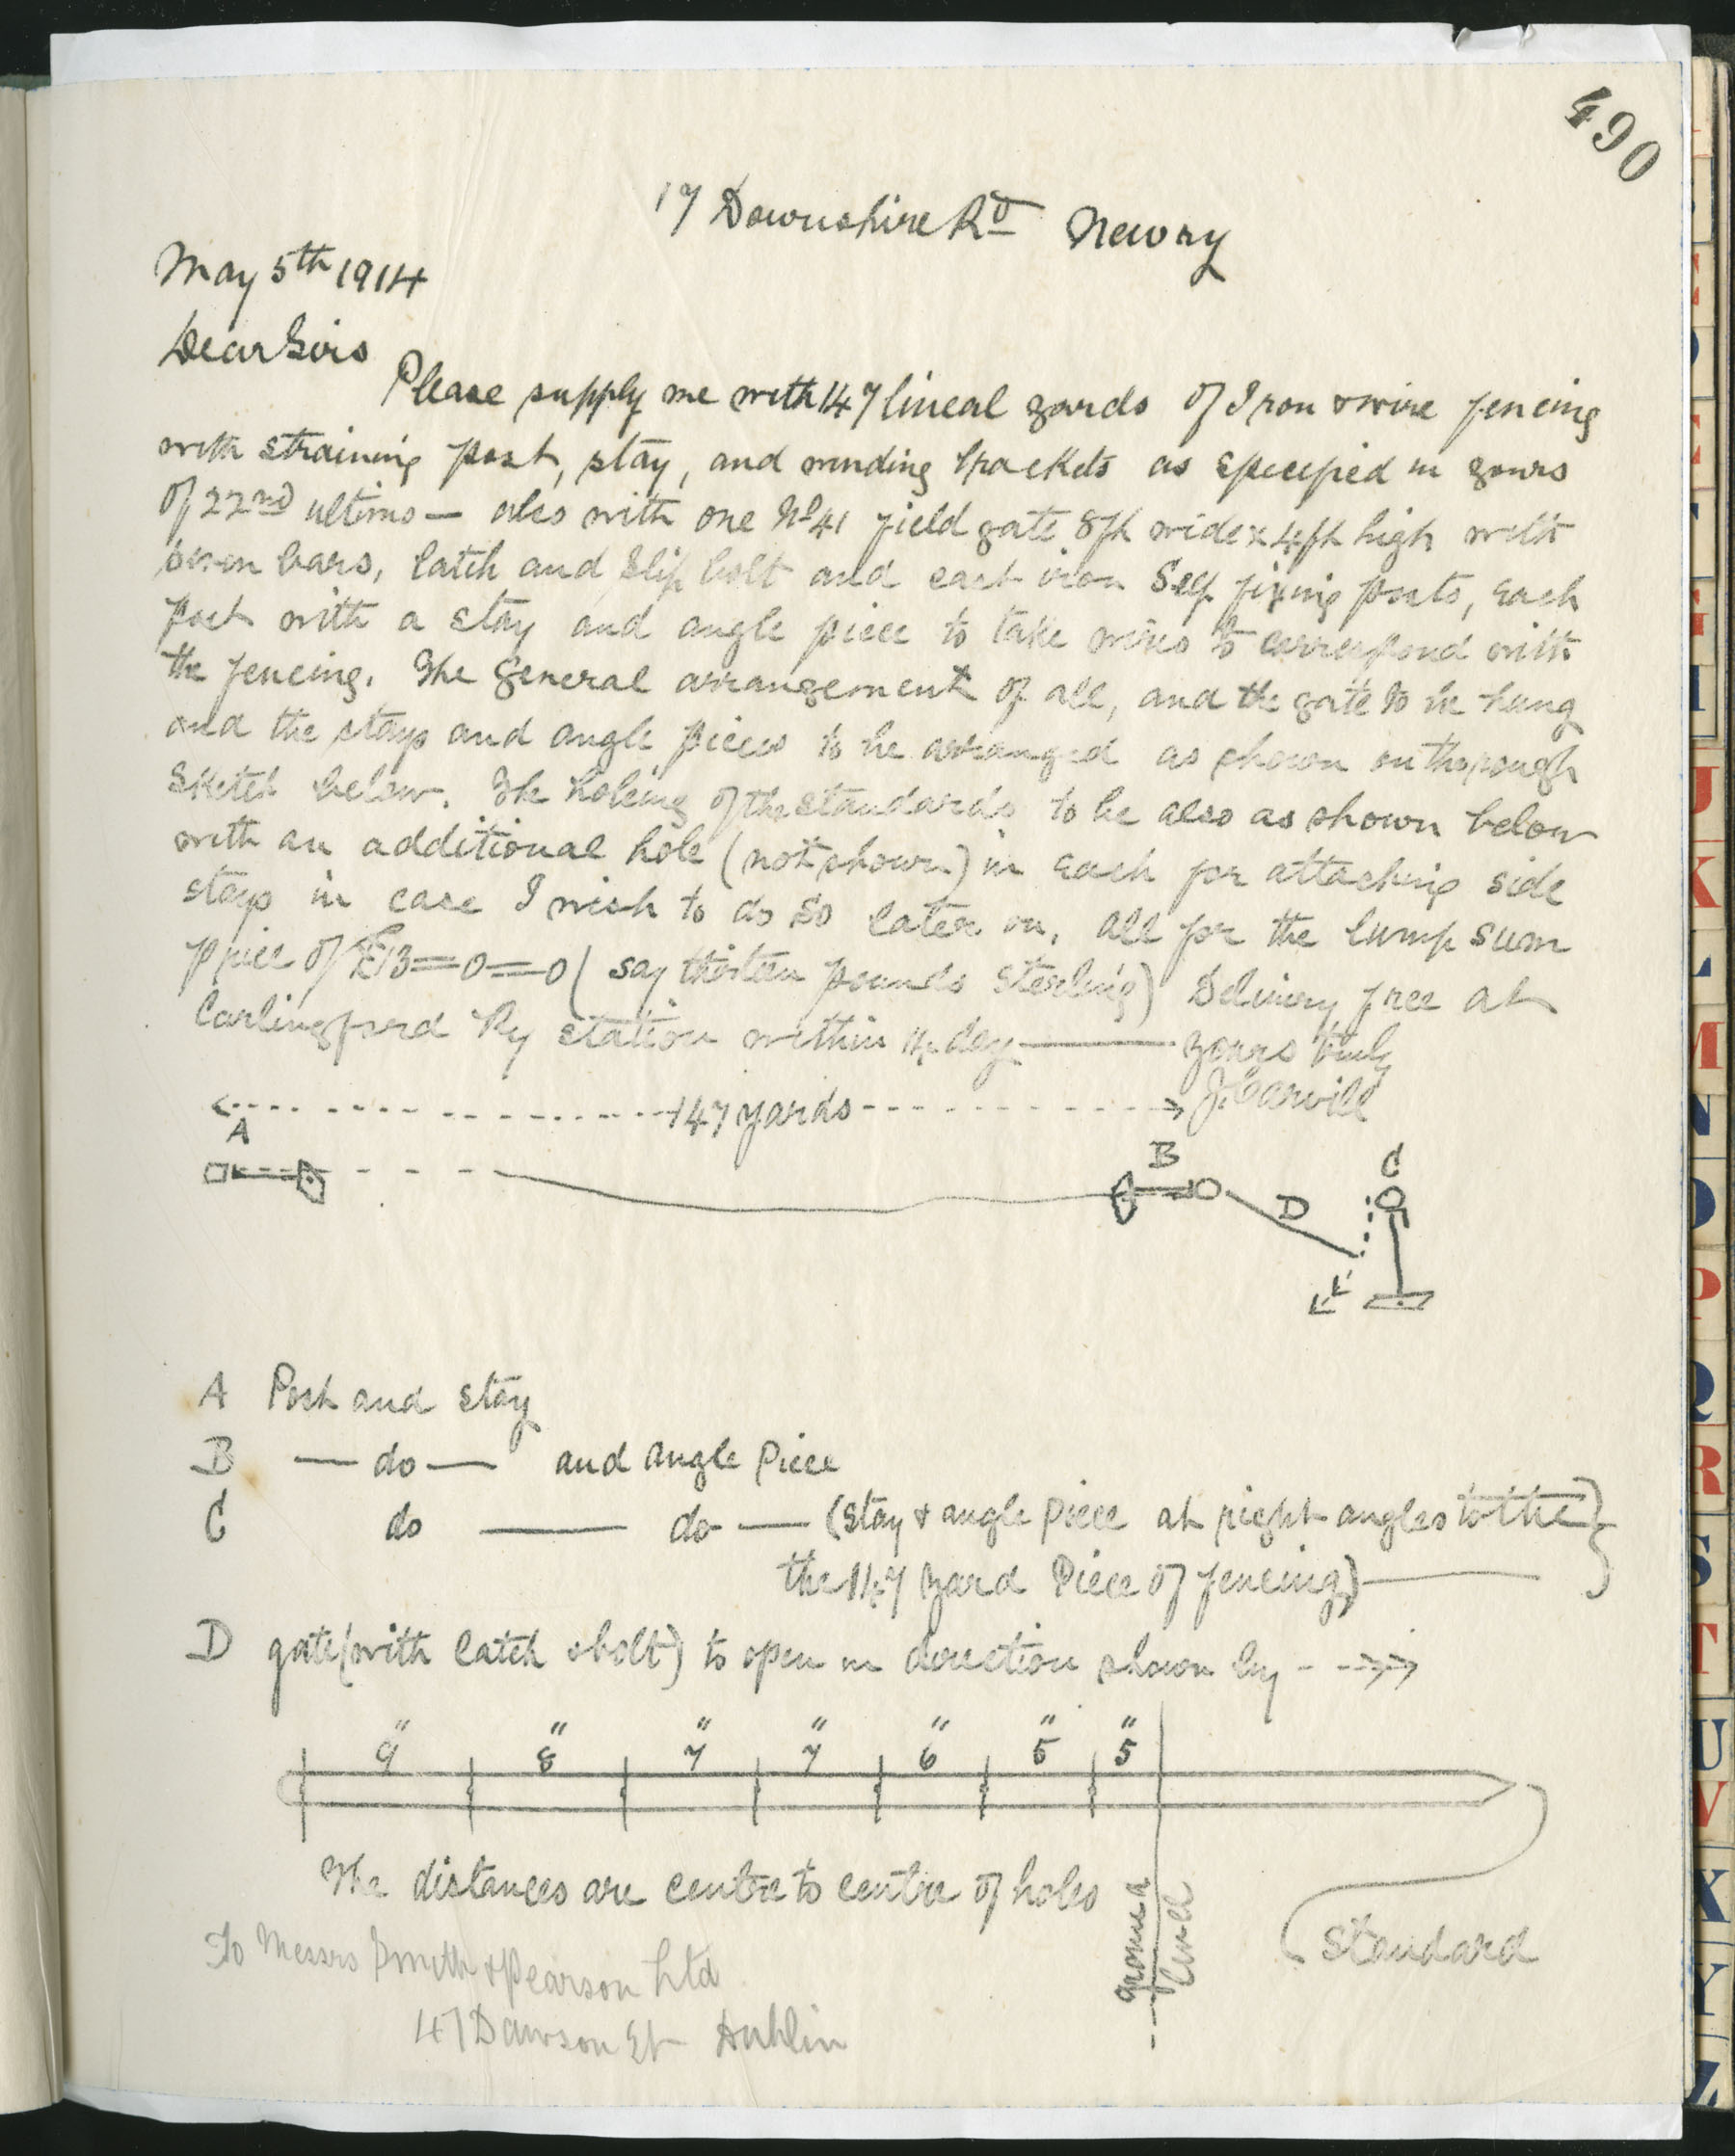 490
17 Downshire Rd Newry
May 5th 1914
Dear Sirs
Please supply me with 147 lineal yards of Iron & wire fencing
with straining post, stay, and winding brackets as specified in yours
of 22nd ultimo — also with one No 41 field gate 8ft wide x 4ft high with
seven bars, latch and slip bolt and cast iron self fixing posts, each
post with a stay and angle piece to take wires to correspond with
the fencing. The general arrangement of all, and the gate to be hung
and the stays and angle pieces to be arranged as shown on the rough
sketch below. The holeing of the standards to be also as shown below
with an additional hole (not shown) in each for attaching side
stays in case I wish to do so later on, all for the lump sum
price of £13=0=0 (say thirteen pounds sterling) Delivery free at
Carlingford Ry station within 14 days — yours truly
J. Carvill
147 yards
A
B
C
D
A Post and stay
B — do — and angle piece
C do — do — (stay & angle piece at right angles to the
the 147 yard piece of fencing) —
D gate (with latch & bolt) to open in direction shown by - - ->>
9" 8" 7" 7" 6" 5" 5"
The distances are centre to centre of holes
ground level
standard
To Messrs Smith & Pearson Ltd
47 Dawson St Dublin
J
K
L
M
N
O
P
Q
R
S
T
U
V
X
Y
Z